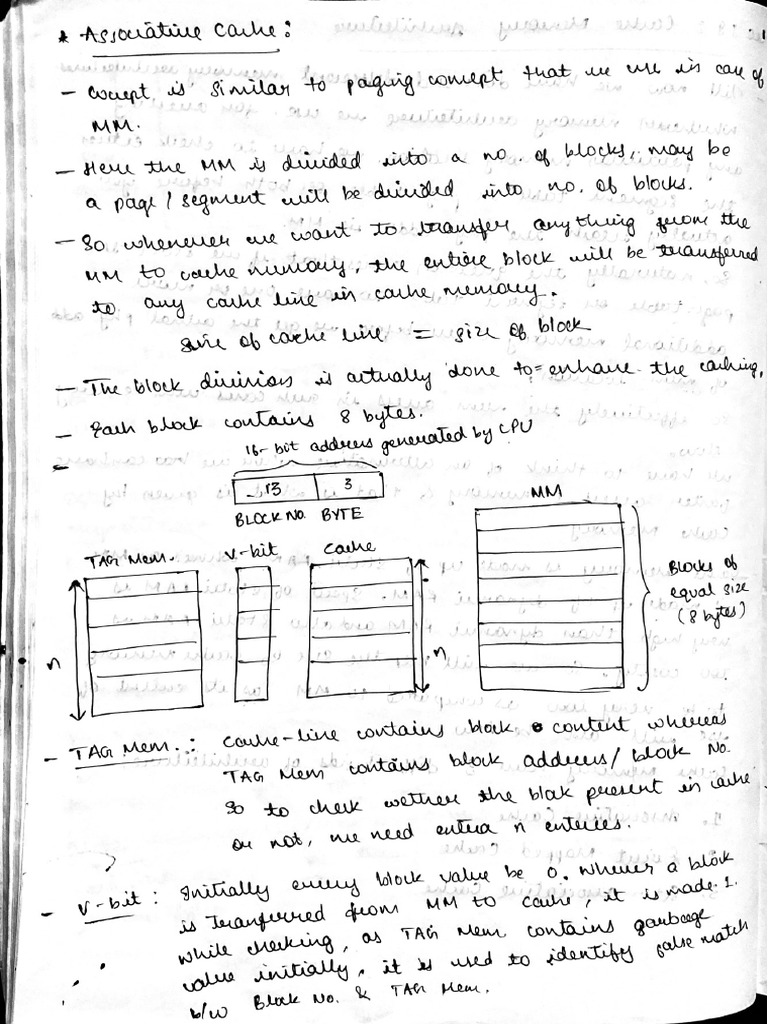 * Associative Cache :
- Concept is similar to paging concept that we use in case of
MM.
- Here the MM is divided into a no. of blocks, may be
a page / segment will be divided into no. of blocks.
- So whenever we want to transfer anything from the
MM to cache memory, the entire block will be transferred
to any cache line in cache memory.
size of cache line = size of block
- The block division is actually done to = enhance the caching.
- Each block contains 8 bytes.
- 16-bit address generated by CPU
13 3
BLOCK NO. BYTE
MM
TAG Mem. V-bit Cache
Blocks of
equal size
(8 bytes)
n n
- TAG Mem. : Cache-line contains block content whereas
TAG Mem contains block address / block No.
So to check wether the block present in cache
or not, we need entra n enteries.
- V-bit : Initially every block value be 0. Whenever a block
is Transferred from MM to cache, it is made 1.
While checking, as TAG Mem contains garbaege
value initially, it is used to identify false match
b/w Block No. & TAG Mem.